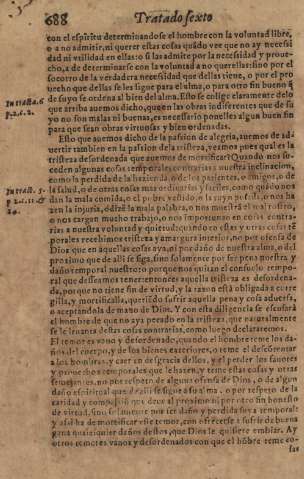 688 Tratado sexto
con el espiritu determinandose el hombre con la voluntad libre,
o a no admitir, ni querer estas cosas quãdo vee que no ay necessi
dad ni vtilidad en ellas: o si las admite por la necessidad y proue-
cho, a de determinarse con la voluntad a no querellas: sino por el
socorro de la verdadera necessidad que dellas tiene, o por el pro
uecho que dellas se les sigue para el alma, o para otro fin bueno q̃
de suyo se ordena al bien del alma. Esto se collige claramente de lo
In tracta. 6
p. 2. c. 2.
que arriba auemos dicho, quen las obras indiferentes que de su
yo no son malas ni buenas, es necessario ponelles algun buen fin
para que sean obras virtuosas y bien ordenadas.
Esto que auemos dicho de la passion de alegria, auemos de ad-
vertir tambien en la passion de la tristeza, veamos pues qual es la
tristeza desordenada que auemos de mortificar? Quando nos su-
ceden algunas cosas temporales contrarias a nuestra inclinacion,
como la perdida de la hazienda, o de los parientes, o amigos, o de
In tracta. 5.
la salud, o de otras cosas mas ordinarias y faciles, como quãdo nos
dan la mala comida, o el pobre vestido, o
zen la injuria, o dizẽ la mala palabra, o nos muestrã el mal rostro,
o nos cargan mucho trabajo, o nos importunan en cosas contra-
rias a nuestra voluntad y quietud: quando en estas y otras cosas tẽ
porales recebimos tristeza y amargura interior, no por ofensa de
Dios que en aquellas cosas aya, ni por daño de nuestra alma, o del
proximo que de alli se siga, sino solamente por ser pena nuestra y
daño temporal nuestro: o porque nos quitan el consuelo tempo-
ral que desseamos tener: entonces aquella tristeza es desordena-
da, porque no tiene fin de virtud, y la razon està obligada a corre
gilla, y mortificalla, queriẽdo sufrir aquella pena y cosa aduersa,
o aceptandola de mano de Dios. Y con esta diligencia se escusarà
el hombre de que no aya pecado en la tristeza, que naturalmente
se le leuanta destas cosas contrarias, como luego declararemos.
El temor es vano y desordenado, quando el hombre teme los da-
ños del cuerpo, y de los bienes exteriores, o teme el descontentar
a los hombres, y caer en desgracia dellos, y el perder los fauores
y prouechos temporales que le hazen, y teme estas cosas y otras
semejantes, no por respeto de alguna ofensa de Dios, o de algun
daño espiritual que de alli se sigue a su alma, o por respeto de la
caridad y compassion que deue al proximo ni por otro fin honesto
de virtud, sino solamente por ser daño y perdida suya temporal:
y assi ha de mortificar este temor, con ofrecerse a sufrir de buena
gana qualesquier daños destos, que Dios le quisiere embiar. Ay
otros temores vanos y desordenados con que el hõbre teme co-
sas